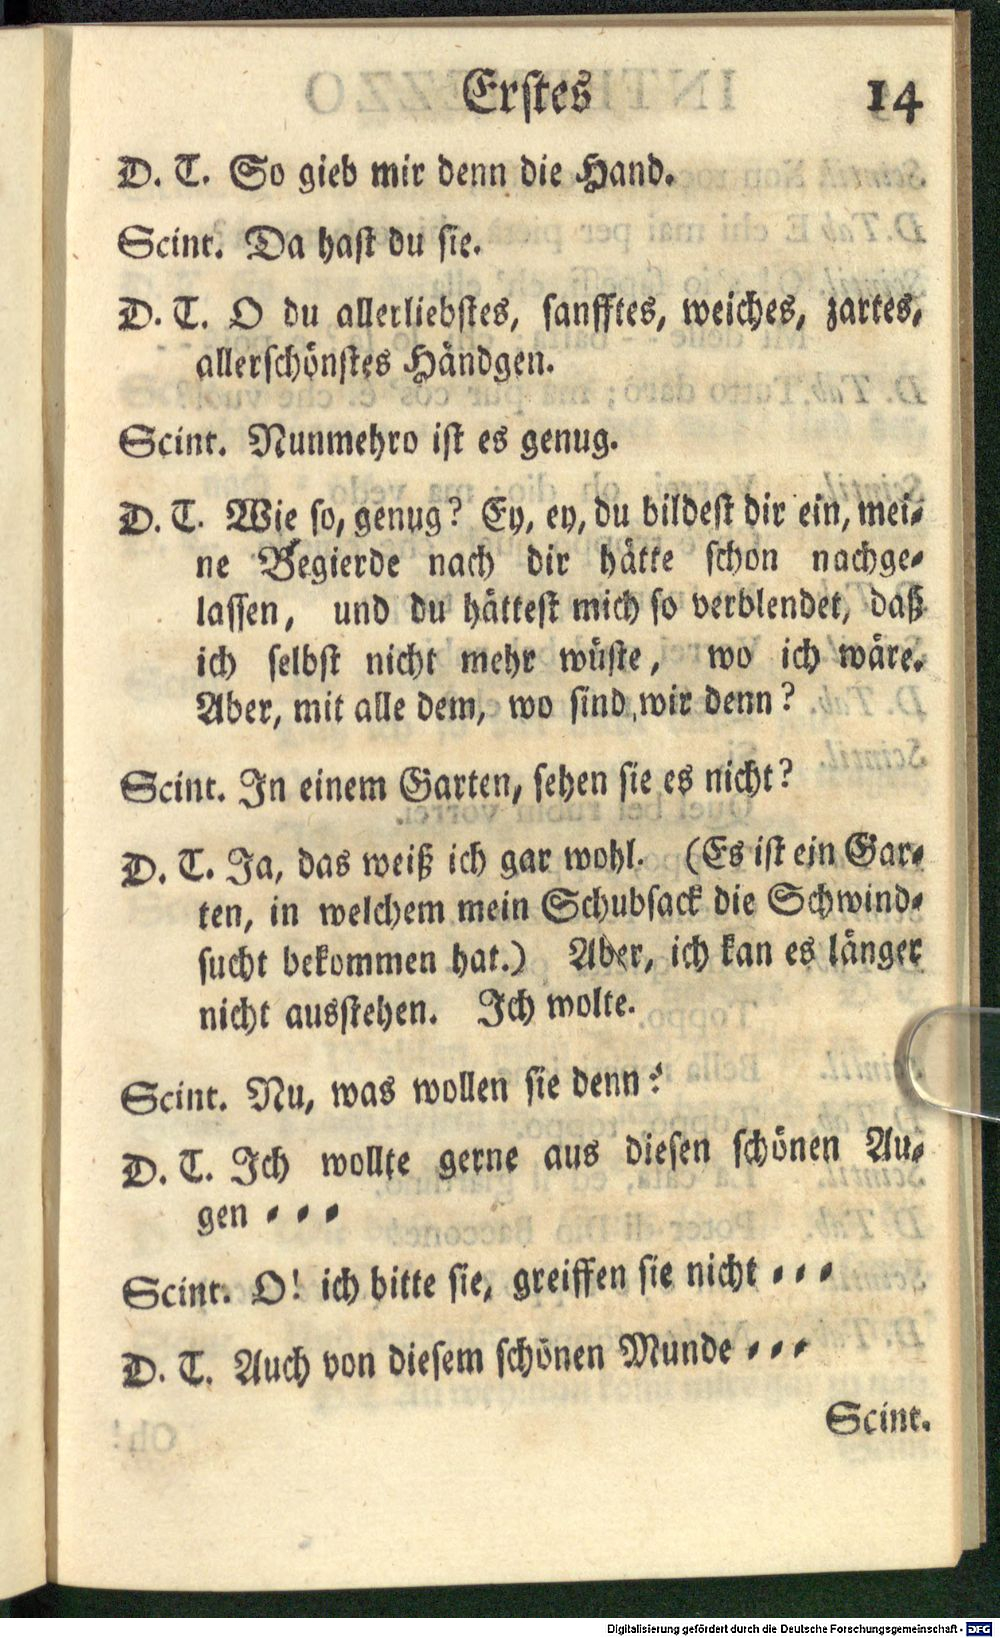 Erstes 14
D. T. So gieb mir denn die Hand.
Scint. Da hast du sie.
D. T. O du allerliebstes, sanfftes, weiches, zartes,
allerschönstes Händgen.
Scint. Nunmehro ist es genug.
D. T. Wie so, genug? Ey, ey, du bildest dir ein, mei-
ne Begierde nach dir hätte schon nachge-
lassen, und du hättest mich so verblendet, daß
ich selbst nicht mehr wüste, wo ich wäre.
Aber, mit alle dem, wo sind wir denn?
Scint. In einem Garten, sehen sie es nicht?
D. T. Ja, das weiß ich gar wohl. (Es ist ein Gar-
ten, in welchem mein Schubsack die Schwind-
sucht bekommen hat.) Aber, ich kan es länger
nicht ausstehen. Ich wolte.
Scint. Nu, was wollen sie denn?
D. T. Ich wollte gerne aus diesen schönen Au-
gen - - -
Scint. O! ich bitte sie, greiffen sie nicht - - -
D. T. Auch von diesem schönen Munde - - -
Scint.
Digitalisierung gefördert durch die Deutsche Forschungsgemeinschaft - DFG